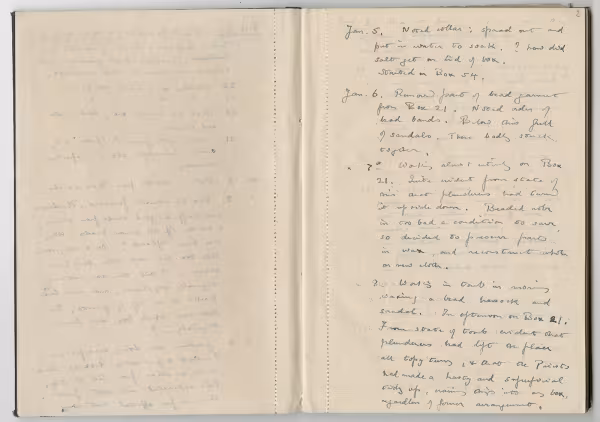 2
Jan. 5. Noted collar: spread out and
put in water to soak. ? how did
salt get on lid of box.
Started on Box 54.
Jan. 6. Removed part of bead garment
from Box 21. Noted order of
bead bands. Below this full
of sandals. These badly stuck
together.
" 7. Working almost entirely on Box
21. Quite evident from state of
this that plunderers had turned
it upside down. Beaded robe
in too bad a condition to save,
so decided to preserve parts
in wax, and reconstruct whole
on new cloth.
8. Working in tomb in morning
waxing a bead and
sandal. In afternoon on Box 21.
From state of tomb evident that
plunderers had left the place
all topsy turvy, & that the Priests
had made a hasty and superficial
tidy up, things into any box,
regardless of former arrangement.